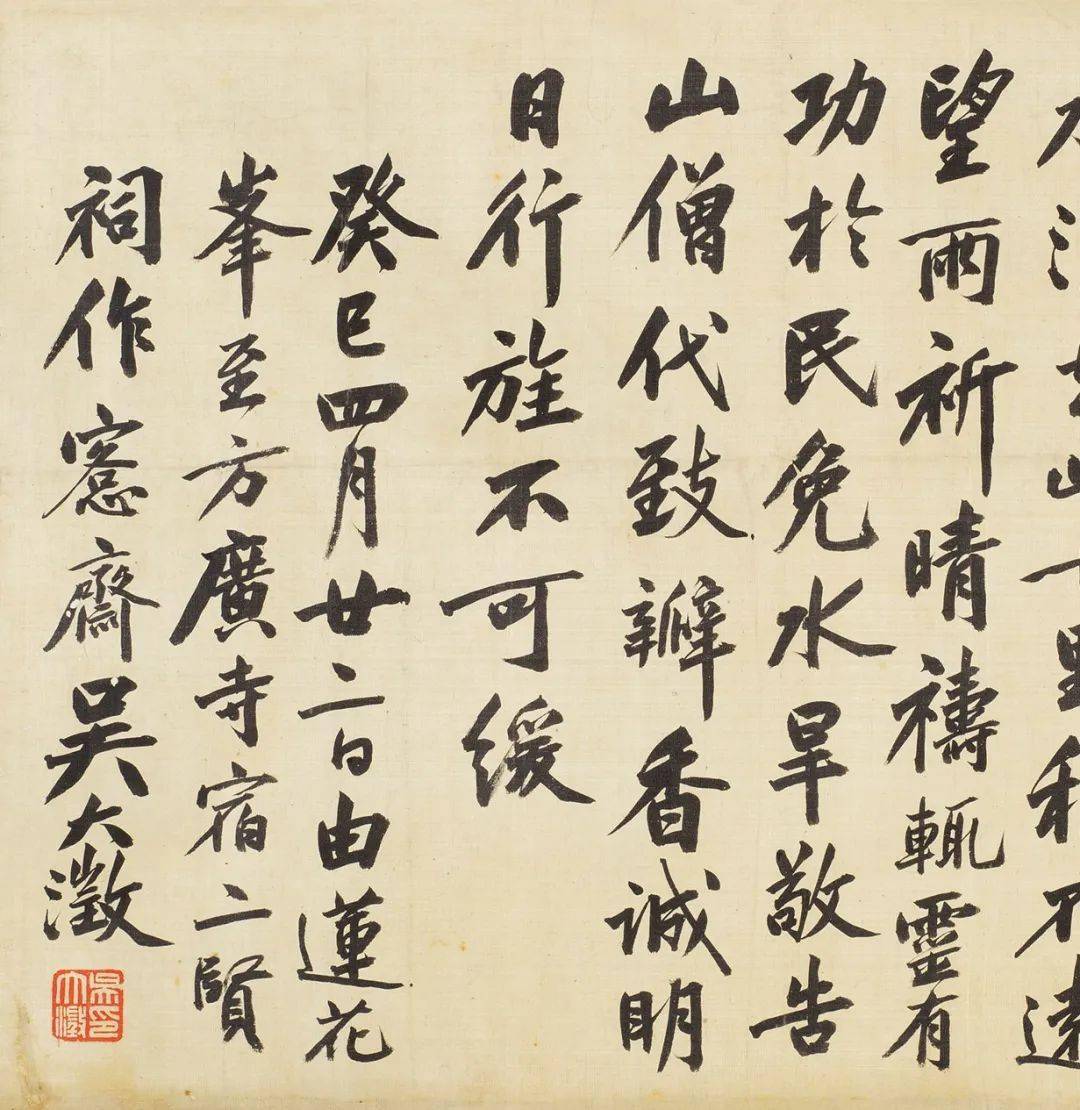 望雨祈晴禱輒靈有
功於民免水旱敬告
山僧代致瓣香誠明
日行旌不可緩
癸巳四月廿二日由蓮花
峯至方廣寺宿二賢
祠作愙齋吳大澂
吳印大澂